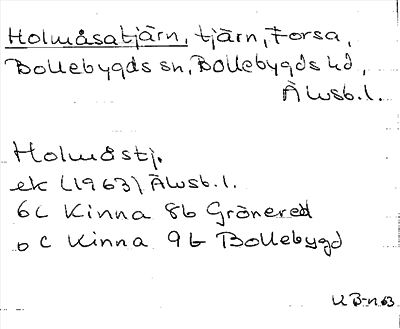 Holmåsatjärn, tjärn, Forsa,
Bollebygds sn, Bollebygds hd,
Älvsb. l.
Holmåstj.
ek (1963) Älvsb. l.
6C Kinna 8b Grönered
o C Kinna 9b Bollebygd
63